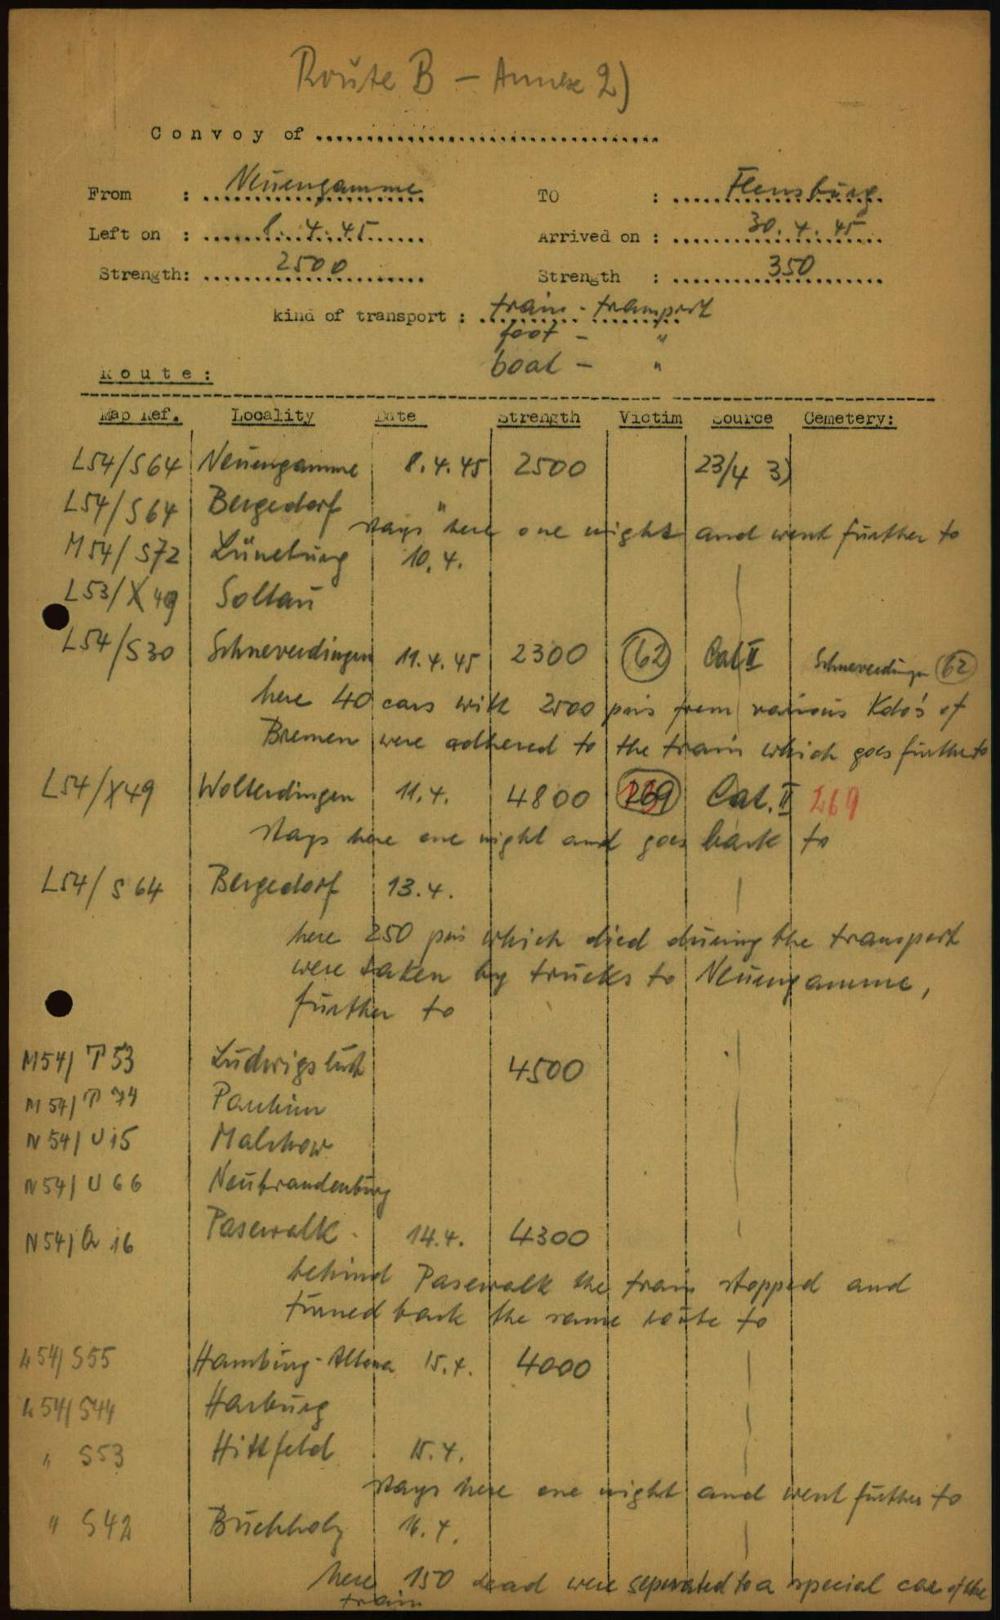 Route B - Annex 2)
Convoy of ....................................
From : Neuengamme TO : Flensburg
Left on : 8. 4. 45 Arrived on : 30. 4. 45
Strength: 2500 Strength : 350
kind of transport : train - transport
foot - "
boat - "
Route:
Map Ref. Locality Date Strength Victim Source Cemetery:
L54/S64 Neuengamme 8.4.45 2500 23/4 3)
L54/S64 Bergedorf "
stays here one night and went further to
M54/S72 Lüneburg 10.4.
L53/X49 Soltau
L54/S30 Schneverdingen 11.4.45 2300 62 Cat II Schneverdingen 62
here 40 cars with 2500 pris from various Kdo's of
Bremen were adhered to the train which goes further to
L54/X49 Wolterdingen 11.4. 4800 269 Cat. II 269
stays here one night and goes back to
L54/S64 Bergedorf 13.4.
here 250 pris which died during the transport
were taken by trucks to Neuengamme,
further to
M54/T53 Ludwigslust 4500
M54/T74 Parchim
N54/U15 Malchow
N54/U66 Neubrandenburg
N54/Q16 Pasewalk 14.4. 4300
behind Pasewalk the train stopped and
turned back the same route to
L54/S55 Hamburg-Altona 15.4. 4000
L54/S44 Harburg
" S53 Hittfeld 15.4.
stays here one night and went further to
" S42 Buchholz 16.4.
here 150 dead were seperated to a special car of the
train